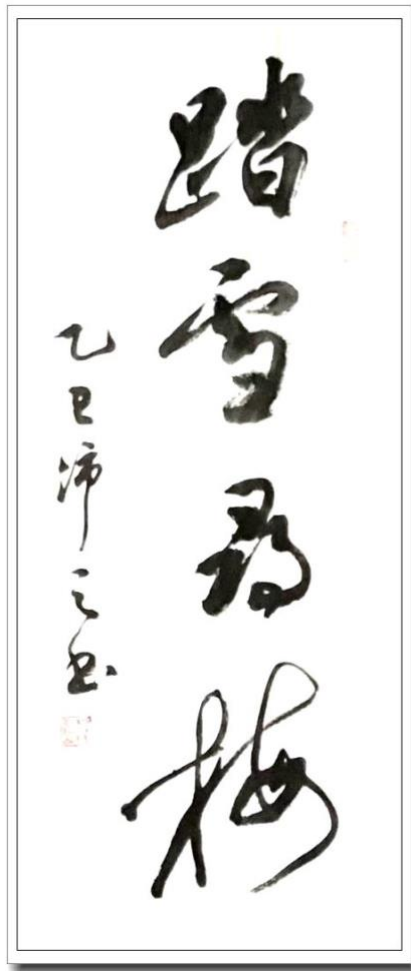 踏雪尋梅
乙巳沛之书